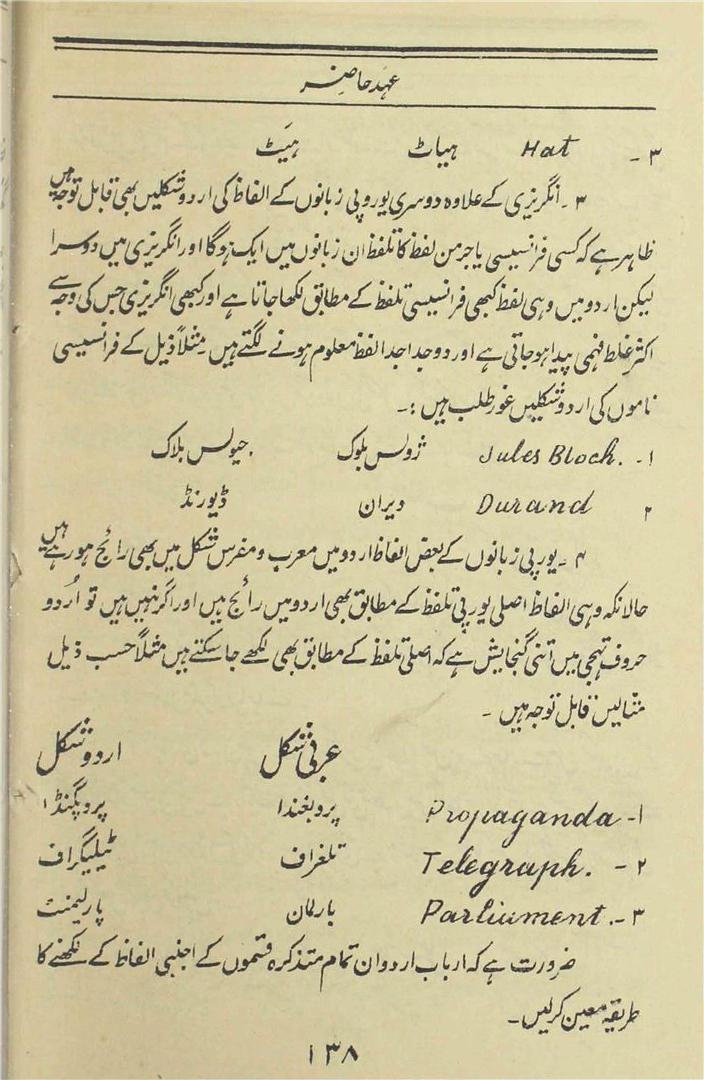 عہد حاضر
۳ - Hat ہیاٹ ہیَٹ
۳ - انگریزی کے علاوہ دوسری یوروپی زبانوں کے الفاظ کی اردو شکلیں بھی قابل توجہ ہیں
ظاہر ہے کہ کسی فرانسیسی یا جرمن لفظ کا تلفظ ان زبانوں میں ایک ہوگا اور انگریزی میں دوسرا
لیکن اردو میں وہی لفظ کبھی فرانسیسی تلفظ کے مطابق لکھا جاتا ہے اور کبھی انگریزی جس کی وجہ سے
اکثر غلط فہمی پیدا ہوجاتی ہے اور دو جدا جدا لفظ معلوم ہونے لگتے ہیں مثلاً ذیل کے فرانسیسی
ناموں کی اردو شکلیں غور طلب ہیں :-
۱- Jules Bloch. ژولس بلوک جیولس بلاک
۲ Durand دیران ڈیورنڈ
۴ - یورپی زبانوں کے بعض الفاظ اردو میں معرب و مفرس شکل میں بھی رائج ہو رہے ہیں
حالانکہ وہی الفاظ اصلی یورپی تلفظ کے مطابق بھی اردو میں رائج ہیں اور اگر نہیں ہیں تو اُردو
حروف تہجی میں اتنی گنجایش ہے کہ اصلی تلفظ کے مطابق بھی لکھے جا سکتے ہیں مثلاً حسب ذیل
مثالیں قابل توجہ ہیں -
عربی شکل اردو شکل
۱- Propaganda پروبغندا پروپگنڈا
۲ - Telegraph. تلغراف ٹیلیگراف
۳ - Parliument. بارلمان پارلیمنٹ
ضرورت ہے کہ ارباب اردو ان تمام متذکرہ قسموں کے اجنبی الفاظ کے لکھنے کا
طریقہ معین کرلیں -
۱۳۸